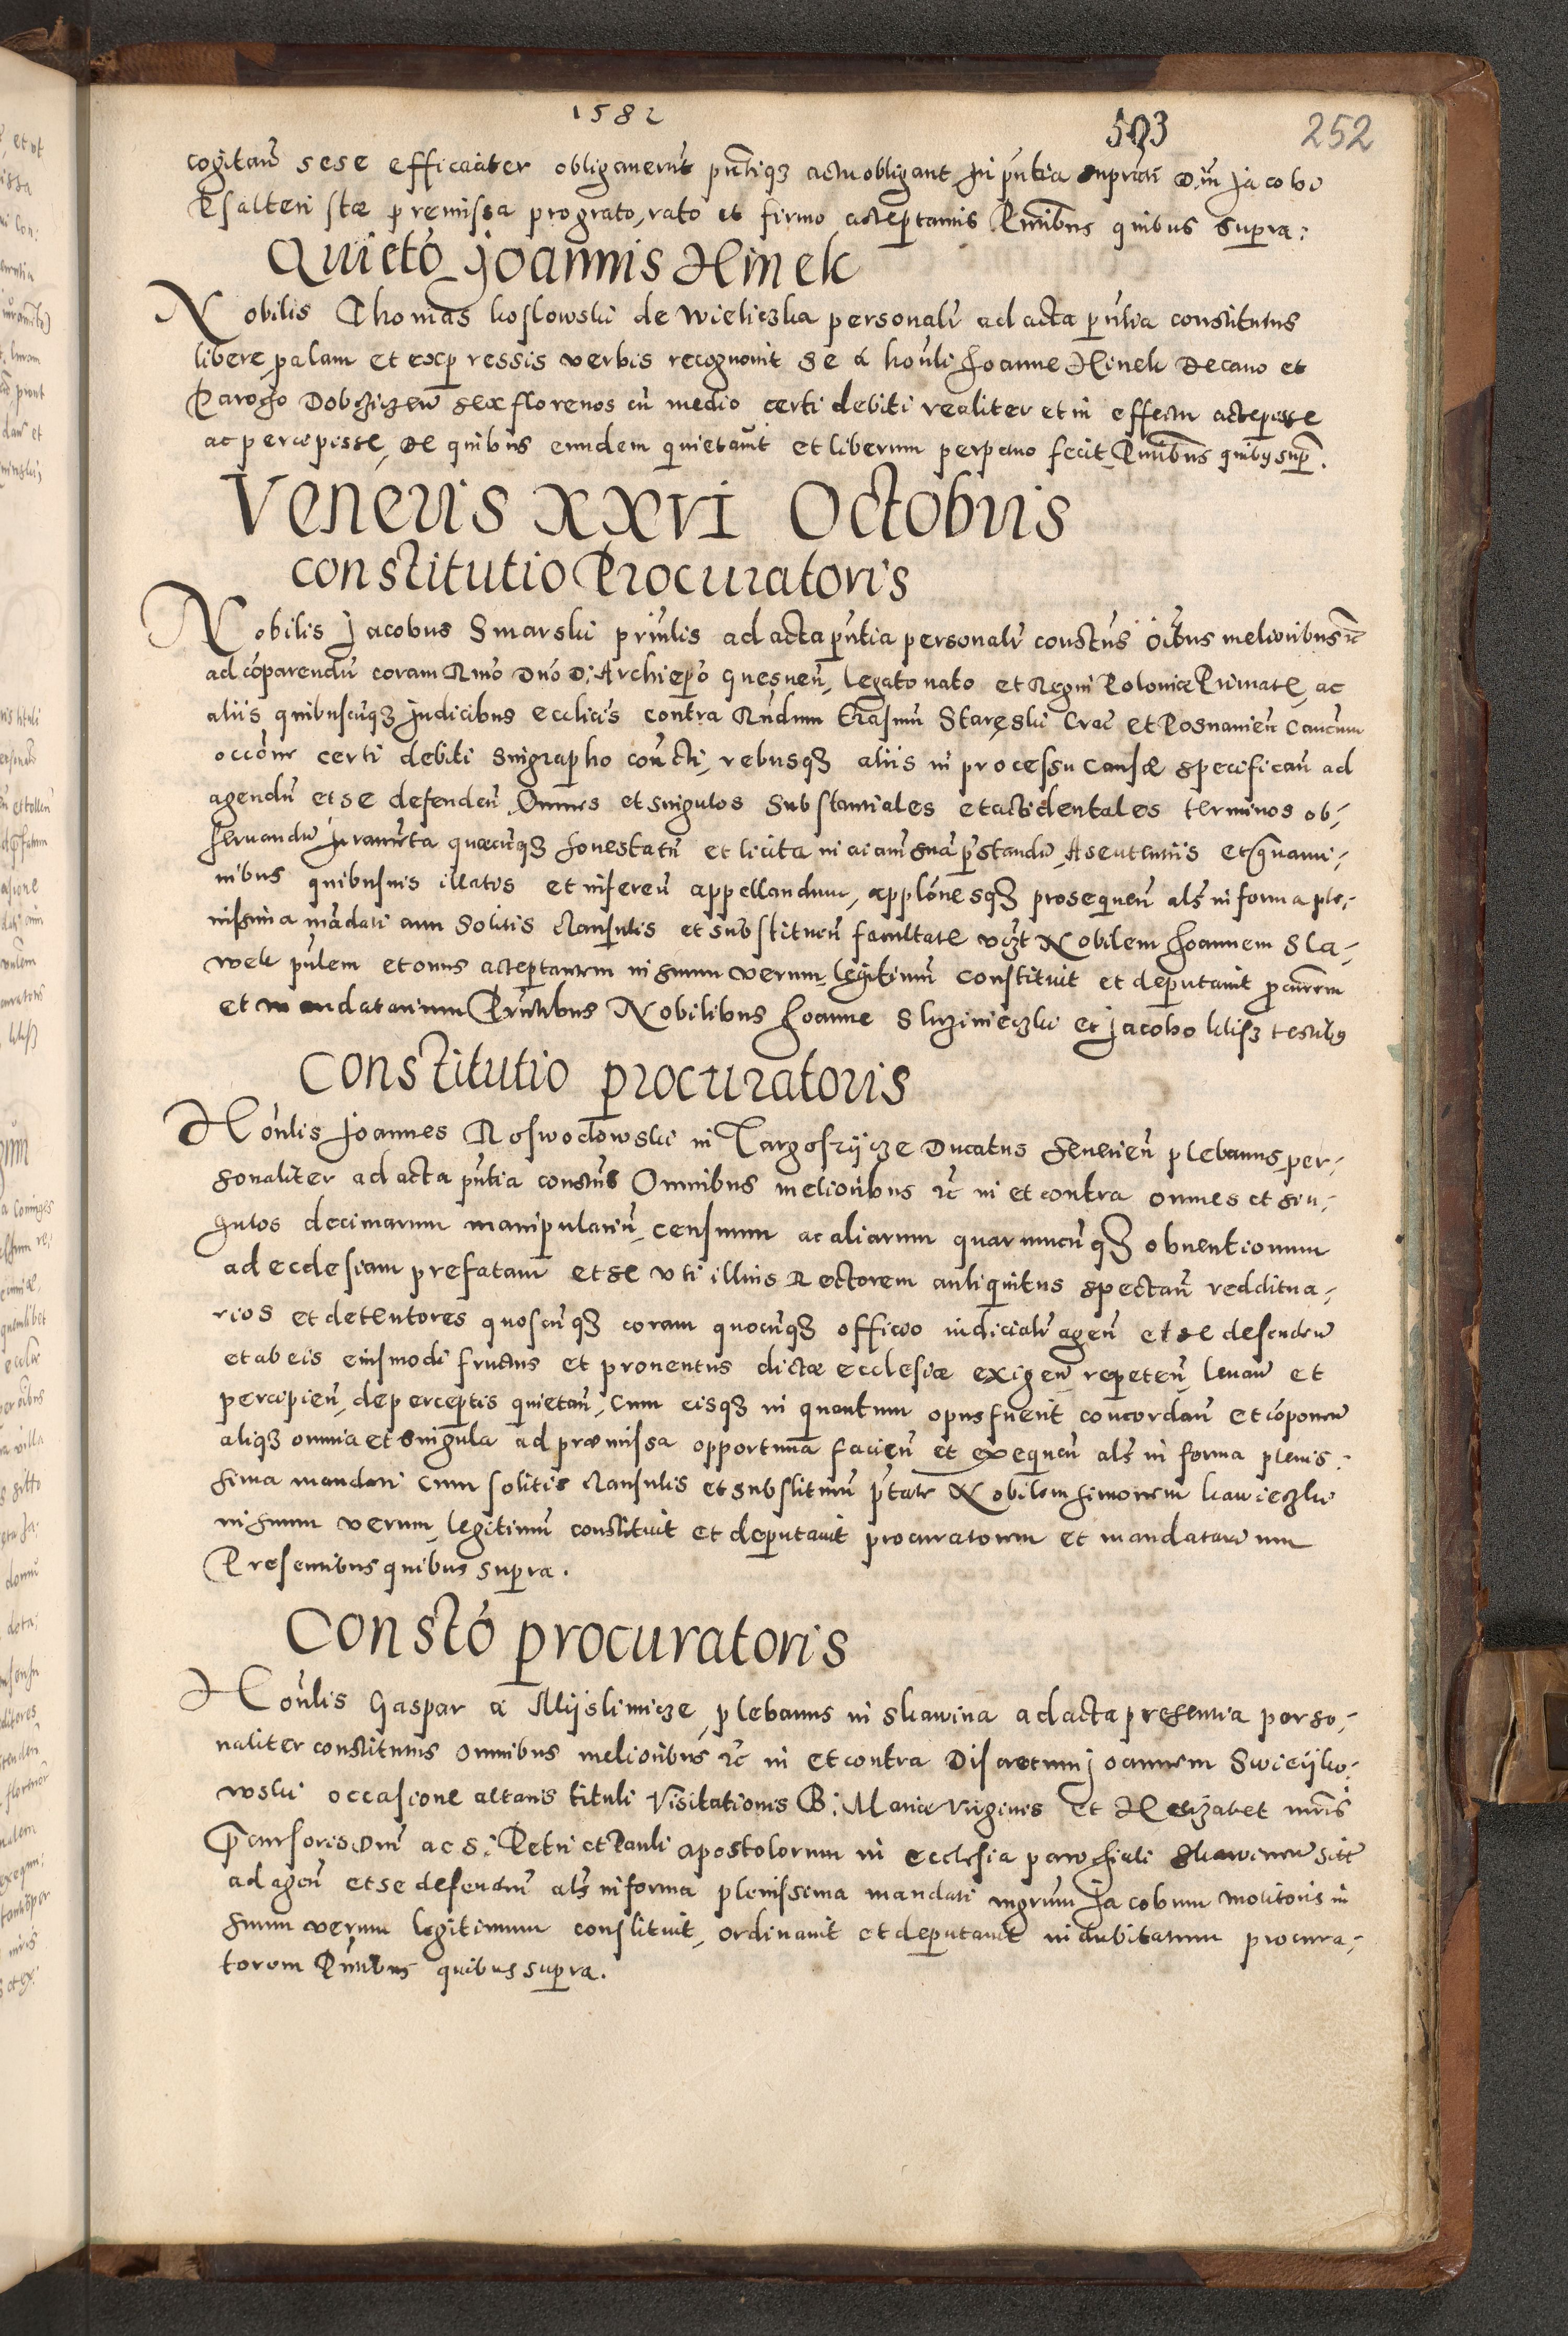 1582
503 252
cogitan̄ sese efficaciter obligaverūt pūtiqȝ actu obligant In pūtia suprati D.ni Jacobi
Psalteristæ premissa pro grato, rato et firmo acceptantis Pūntibus quibus supra:
Quietō Joannis Hinek
Nobilis Thomas koslowski de wieliczka personalr̄ ad acta pūtia constitutus
libere palam et expressis verbis recognovit se a honli Joanne Hinek Decano et
Parocho Dobczicen̄ sex florenos cū medio certi debiti realiter et in effectu accepisse
ac percepisse, de quibus eundem quietavit et liberum perpetuo fecit Pūntibus quibus supra.
Veneris XXVI Octobris
constitutio Procuratoris
Nobilis Jacobus Smarski priūlis ad acta pūtia personalr̄ constūs oībus melioribus rc̄
ad cōparendū coram Rmo Dno D: Archiepō Gnesnen̄, legato nato et Regni Poloniæ Primate, ac
aliis quibuscūqȝ Judicibus eccliīcis contra Rndum Erasmū Staręski Crac̄ et Posnanien̄ Canc̄um
occōne certi debiti singrapho contcti, rebusqȝ aliis in processu causæ specifican̄ ad
agendū et se defenden̄ Omnes et singulos substantiales et accidentales terminos ob-
servandū Juramēta quæcūqȝ honestatū et licita in aiam suā pr̄standū A sententiis et gravami-
nibus quibusvis illatis et inferen̄ appellandum, applōnesqȝ prosequen̄ als̄ in forma ple-
nissima mādati cum solitis clausulis et substituen̄ facultate vczt Nobilem Joannem Sla-
wek pūlem et onus acceptantem in suum verum legitimū constituit et deputavit procurem
et mandatarium Pūntibus Nobilibus Joanne Sluzinieczki et Jacobo klisz testibus
Constitutio procuratoris
Honlis Joannes Roswodowski in Targoszijcze Ducatus Severien̄ plebanus per-
sonaliter ad acta pūtia constūs Omnibus melioribus rc̄ in et contra omnes et sin-
gulos decimarum manipulariū, censuum ac aliarum quarumcūqȝ obventionum
ad ecclesiam prefatam et se vti illius Rectorem antiquitus spectan̄ redditua-
rios et detentores quoscūqȝ coram quocūqȝ officio iudicialr̄ agen̄ et se defenden̄
et ab eis eiusmodi fructus et proventus dictæ ecclesiæ exigen̄ repeten̄, levan̄ et
percipien̄, de perceptis quietan̄, cum eisqȝ in quantum opus fuerit concordan̄ et cōponen̄
aliqȝ omnia et singula ad præmissa opportuna facien̄ et exequen̄ als̄ in forma plenis-
sima mandati cum solitis clausulis et substituen̄ pt̄ate Nobilem Simonem kawieczki
in suum verum legitimū constituit et deputavit procuratorem et mandatarium
Presentibus quibus supra.
Constō procuratoris
Honlis Gaspar a Mijslimicze, plebanus in skawina ad acta presentia perso-
naliter constitutus omnibus melioribus rc̄ in et contra Discretum Joannem Swieijko-
wski occasione altaris tituli Visitationis B: Mariæ virginis et Helizabet mr̄is
Præcursoris Dni ac s: Petri et Pauli apostolorum in ecclesia parochiali skawinen̄ sitt̄
ad agen̄ et se defenden̄ als̄ in forma plenissima mandati mgrum Jacobum molitoris in
suum verum legitimum constituit, ordinavit et deputavit indubitatum procura-
torem Pūntibus quibus supra.